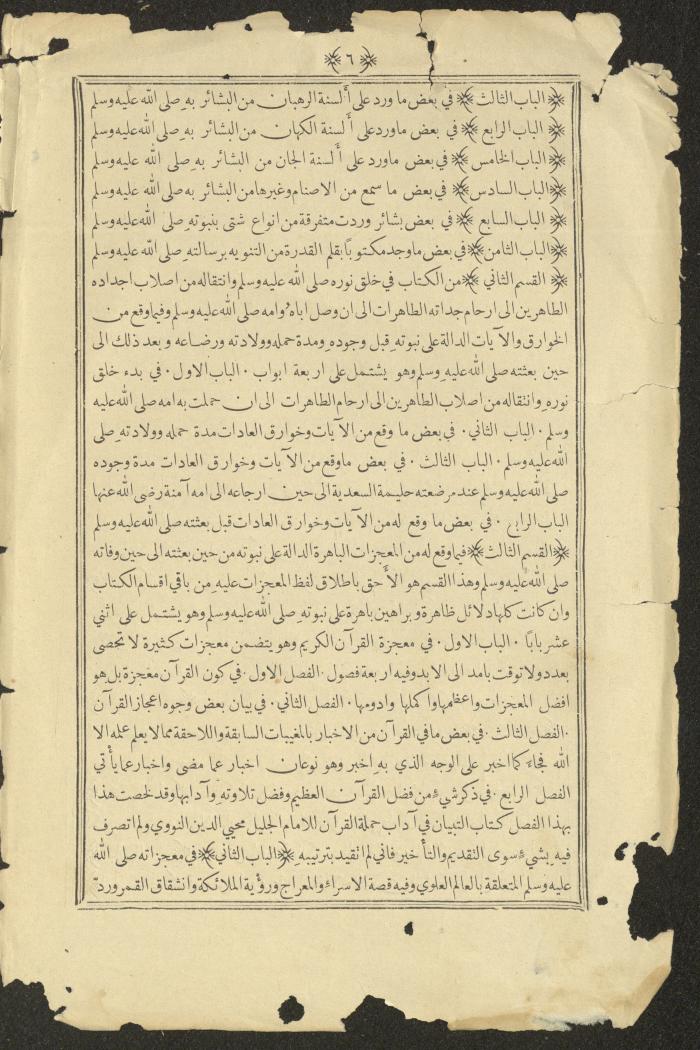 ﴿ ٦ ﴾
﴿ الباب الثالث ﴾ في بعض ما ورد على ألسنة الرهبان من البشائر به صلى الله عليه وسلم
﴿ الباب الرابع ﴾ في بعض ماورد على ألسنة الكهان من البشائر به صلى الله عليه وسلم
﴿ الباب الخامس ﴾ في بعض ماورد على ألسنة الجان من البشائر به صلى الله عليه وسلم
﴿ الباب السادس ﴾ في بعض ما سمع من الاصنام وغيرها من البشائر به صلى الله عليه وسلم
﴿ الباب السابع ﴾ في بعض بشائر وردت متفرقة من انواع شتى بنبوته صلى الله عليه وسلم
﴿ الباب الثامن ﴾ في بعض ما وجد مكتوبًا بقلم القدرة من التنويه برسالته صلى الله عليه وسلم
﴿ القسم الثاني ﴾ من الكتاب في خلق نوره صلى الله عليه وسلم وانتقاله من اصلاب اجداده
الطاهرين الى ارحام جداته الطاهرات الى ان وصل اباه وامه صلى الله عليه وسلم وفيما وقع من
الخوارق والآيات الدالة على نبوته قبل وجوده ومدة حمله وولادته ورضاعه وبعد ذلك الى
حين بعثته صلى الله عليه وسلم وهو يشتمل على اربعة ابواب ٠ الباب الاول ٠ في بدء خلق
نوره وانتقاله من اصلاب الطاهرين الى ارحام الطاهرات الى ان حملت به امه صلى الله عليه
وسلم ٠ الباب الثاني ٠ في بعض ما وقع من الآيات وخوارق العادات مدة حمله وولادته صلى
الله عليه وسلم ٠ الباب الثالث ٠ في بعض ماوقع من الآيات وخوارق العادات مدة وجوده
صلى الله عليه وسلم عند مرضعته حليمة السعدية الى حين ارجاعه الى امه آمنة رضى الله عنها
الباب الرابع ٠ في بعض ما وقع له من الآيات وخوارق العادات قبل بعثته صلى الله عليه وسلم
﴿ القسم الثالث ﴾ فيما وقع له من المعجزات الباهرة الدالة على نبوته من حين بعثته الى حين وفاته
صلى الله عليه وسلم وهذا القسم هو الأحق باطلاق لفظ المعجزات عليه من باقي اقسام الكتاب
وان كانت كلها دلائل ظاهرة وبراهين باهرة على نبوته صلى الله عليه وسلم وهو يشتمل على اثني
عشر بابًا ٠ الباب الاول ٠ في معجزة القرآن الكريم وهو يتضمن معجزات كثيرة لا تحصى
بعدد ولا توقت بامد الى الابد وفيه اربعة فصول ٠ الفصل الاول ٠ في كون القرآن معجزة بل هو
افضل المعجزات واعظمها واكملها وادومها ٠ الفصل الثاني ٠ في بيان بعض وجوه اعجاز القرآن
٠ الفصل الثالث ٠ في بعض مافي القرآن من الاخبار بالمغيبات السابقة واللاحقة مما لا يعلم علمه الا
الله فجاء كما اخبر على الوجه الذي به اخبر وهو نوعان اخبار عما مضى واخبار عما يأتي
الفصل الرابع ٠ في ذكر شيء من فضل القرآن العظيم وفضل تلاوته وآدابها وقد لخصت هذا
بهذا الفصل كتاب التبيان في آداب حملة القرآن للامام الجليل محيي الدين النووي ولم اتصرف
فيه بشيء سوى التقديم والتأخير فاني لم اتقيد بترتيبه ﴿ الباب الثاني ﴾ في معجزاته صلى الله
عليه وسلم المتعلقة بالعالم العلوي وفيه قصة الاسراء والمعراج ورؤية الملائكة وانشقاق القمر وردّ